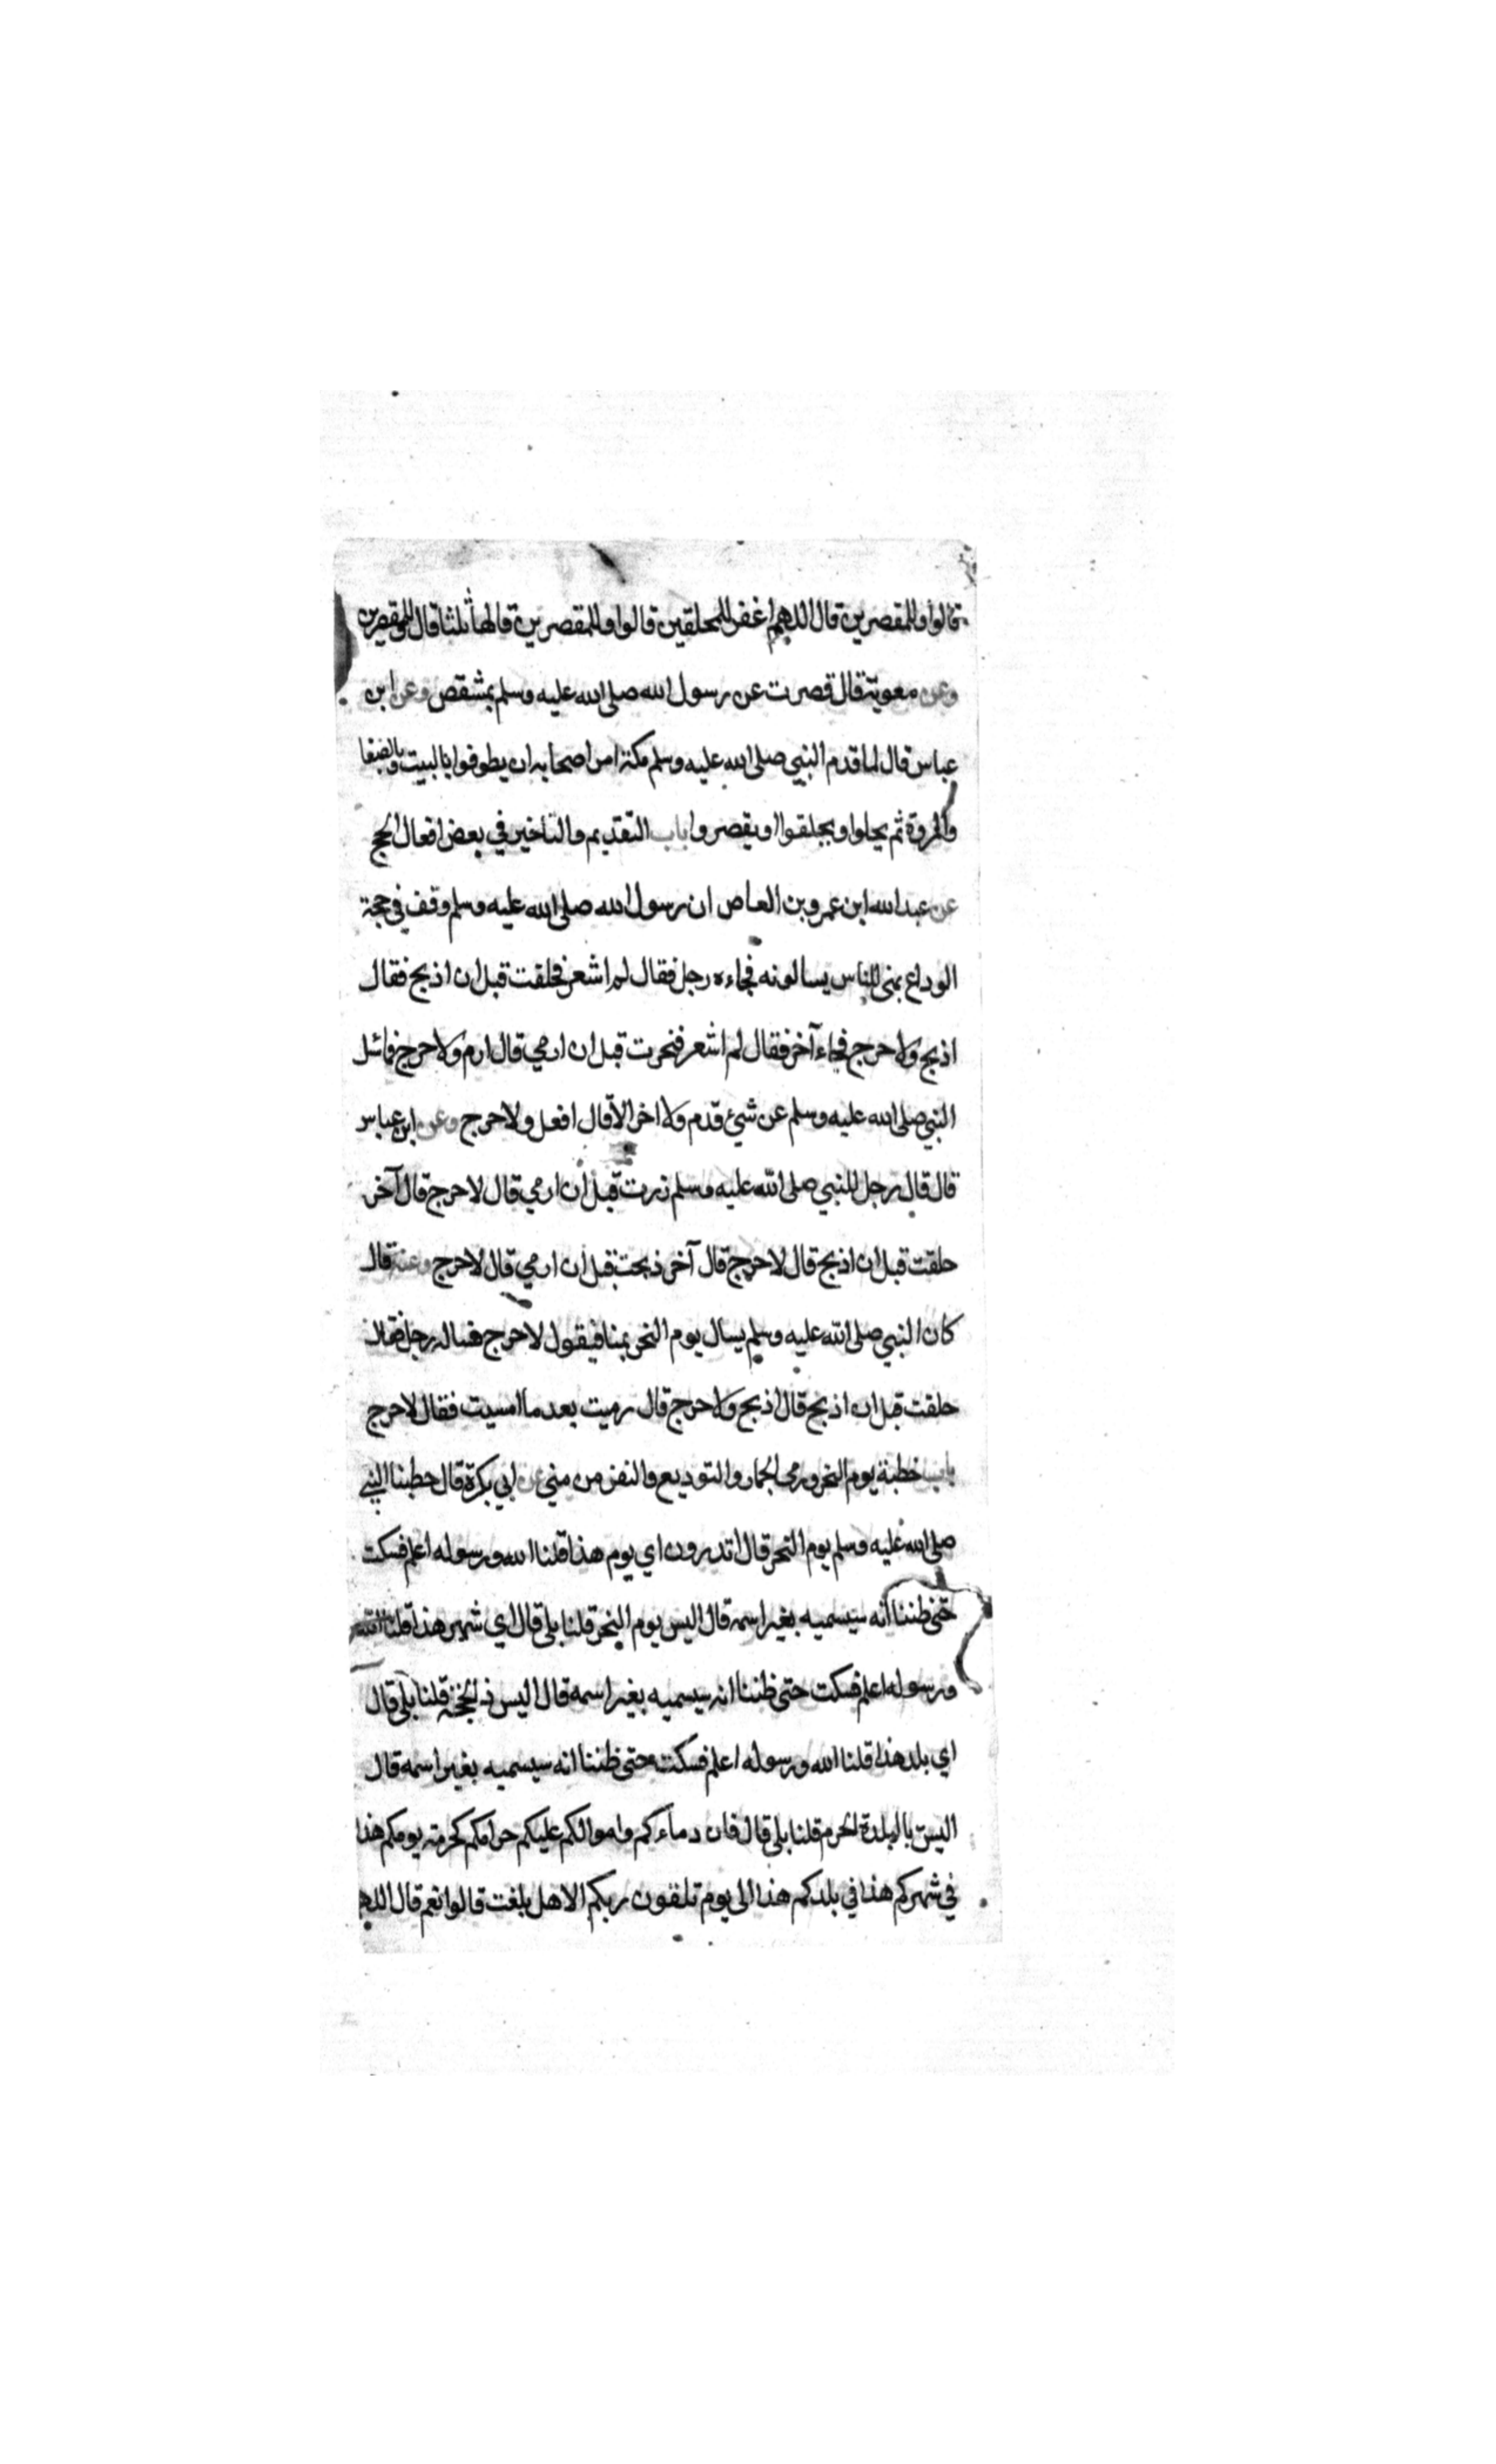 قالوا وللمقصرين قال اللهم اغفر للمحلقين قالوا وللمقصرين قالها ثلثا قال وللمقصرين
وعن معوية قال قصرت عن رسول الله صلى الله عليه وسلم بمشقص وعن ابن
عباس قال لما قدم النبي صلى الله عليه وسلم مكة امر اصحابه ان يطوفوا بالبيت وبالصفا
والمروة ثم يحلوا ويحلقوا او يقصروا باب التقديم والتاخير في بعض افعال الحج
عن عبد الله ابن عمرو بن العاص ان رسول الله صلى الله عليه وسلم وقف في حجة
الوداع بمنى للناس يسالونه فجاءه رجل فقال لم اشعر فحلقت قبل ان اذبح فقال
اذبح ولا حرج فجاء آخر فقال لم اشعر فنحرت قبل ان ارمي قال ارم ولا حرج فما سئل
النبي صلى الله عليه وسلم عن شيئ قدم ولا اخر الا قال افعل ولا حرج وعن ابن عباس
قال قال رجل للنبي صلى الله عليه وسلم زرت قبل ان ارمي قال لا حرج قال آخر
حلقت قبل ان اذبح قال لا حرج قال آخر ذبحت قبل ان ارمي قال لا حرج وعنه قال
كان النبي صلى الله عليه وسلم يسال يوم النحر بمنا فيقول لا حرج فساله رجل فقال
حلقت قبل ان اذبح قال اذبح ولا حرج قال رميت بعد ما امسيت فقال لا حرج
باب خطبة يوم النحر ورمى الجمار والتوديع والنفر من مني عن ابي بكرة قال خطبنا النبي
صلى الله عليه وسلم يوم النحر قال اتدرون اي يوم هذا قلنا الله ورسوله اعلم فسكت
حتى ظننا انه سيسميه بغير اسمه قال اليس يوم النحر قلنا بلى قال اي شهر هذا قلنا الله
ورسوله اعلم فسكت حتى ظننا انه سيسميه بغير اسمه قال اليس ذ الحجة قلنا بلى قال
اي بلد هذا قلنا الله ورسوله اعلم فسكت حتى ظننا انه سيسميه بغير اسمه قال
اليس بالبلدة الحرم قلنا بلى قال فان دماءكم واموالكم عليكم حرامكم كحرمة يومكم هذا
في شهركم هذا في بلدكم هذا الى يوم تلقون ربكم الا هل بلغت قالوا نعم قال اللهم